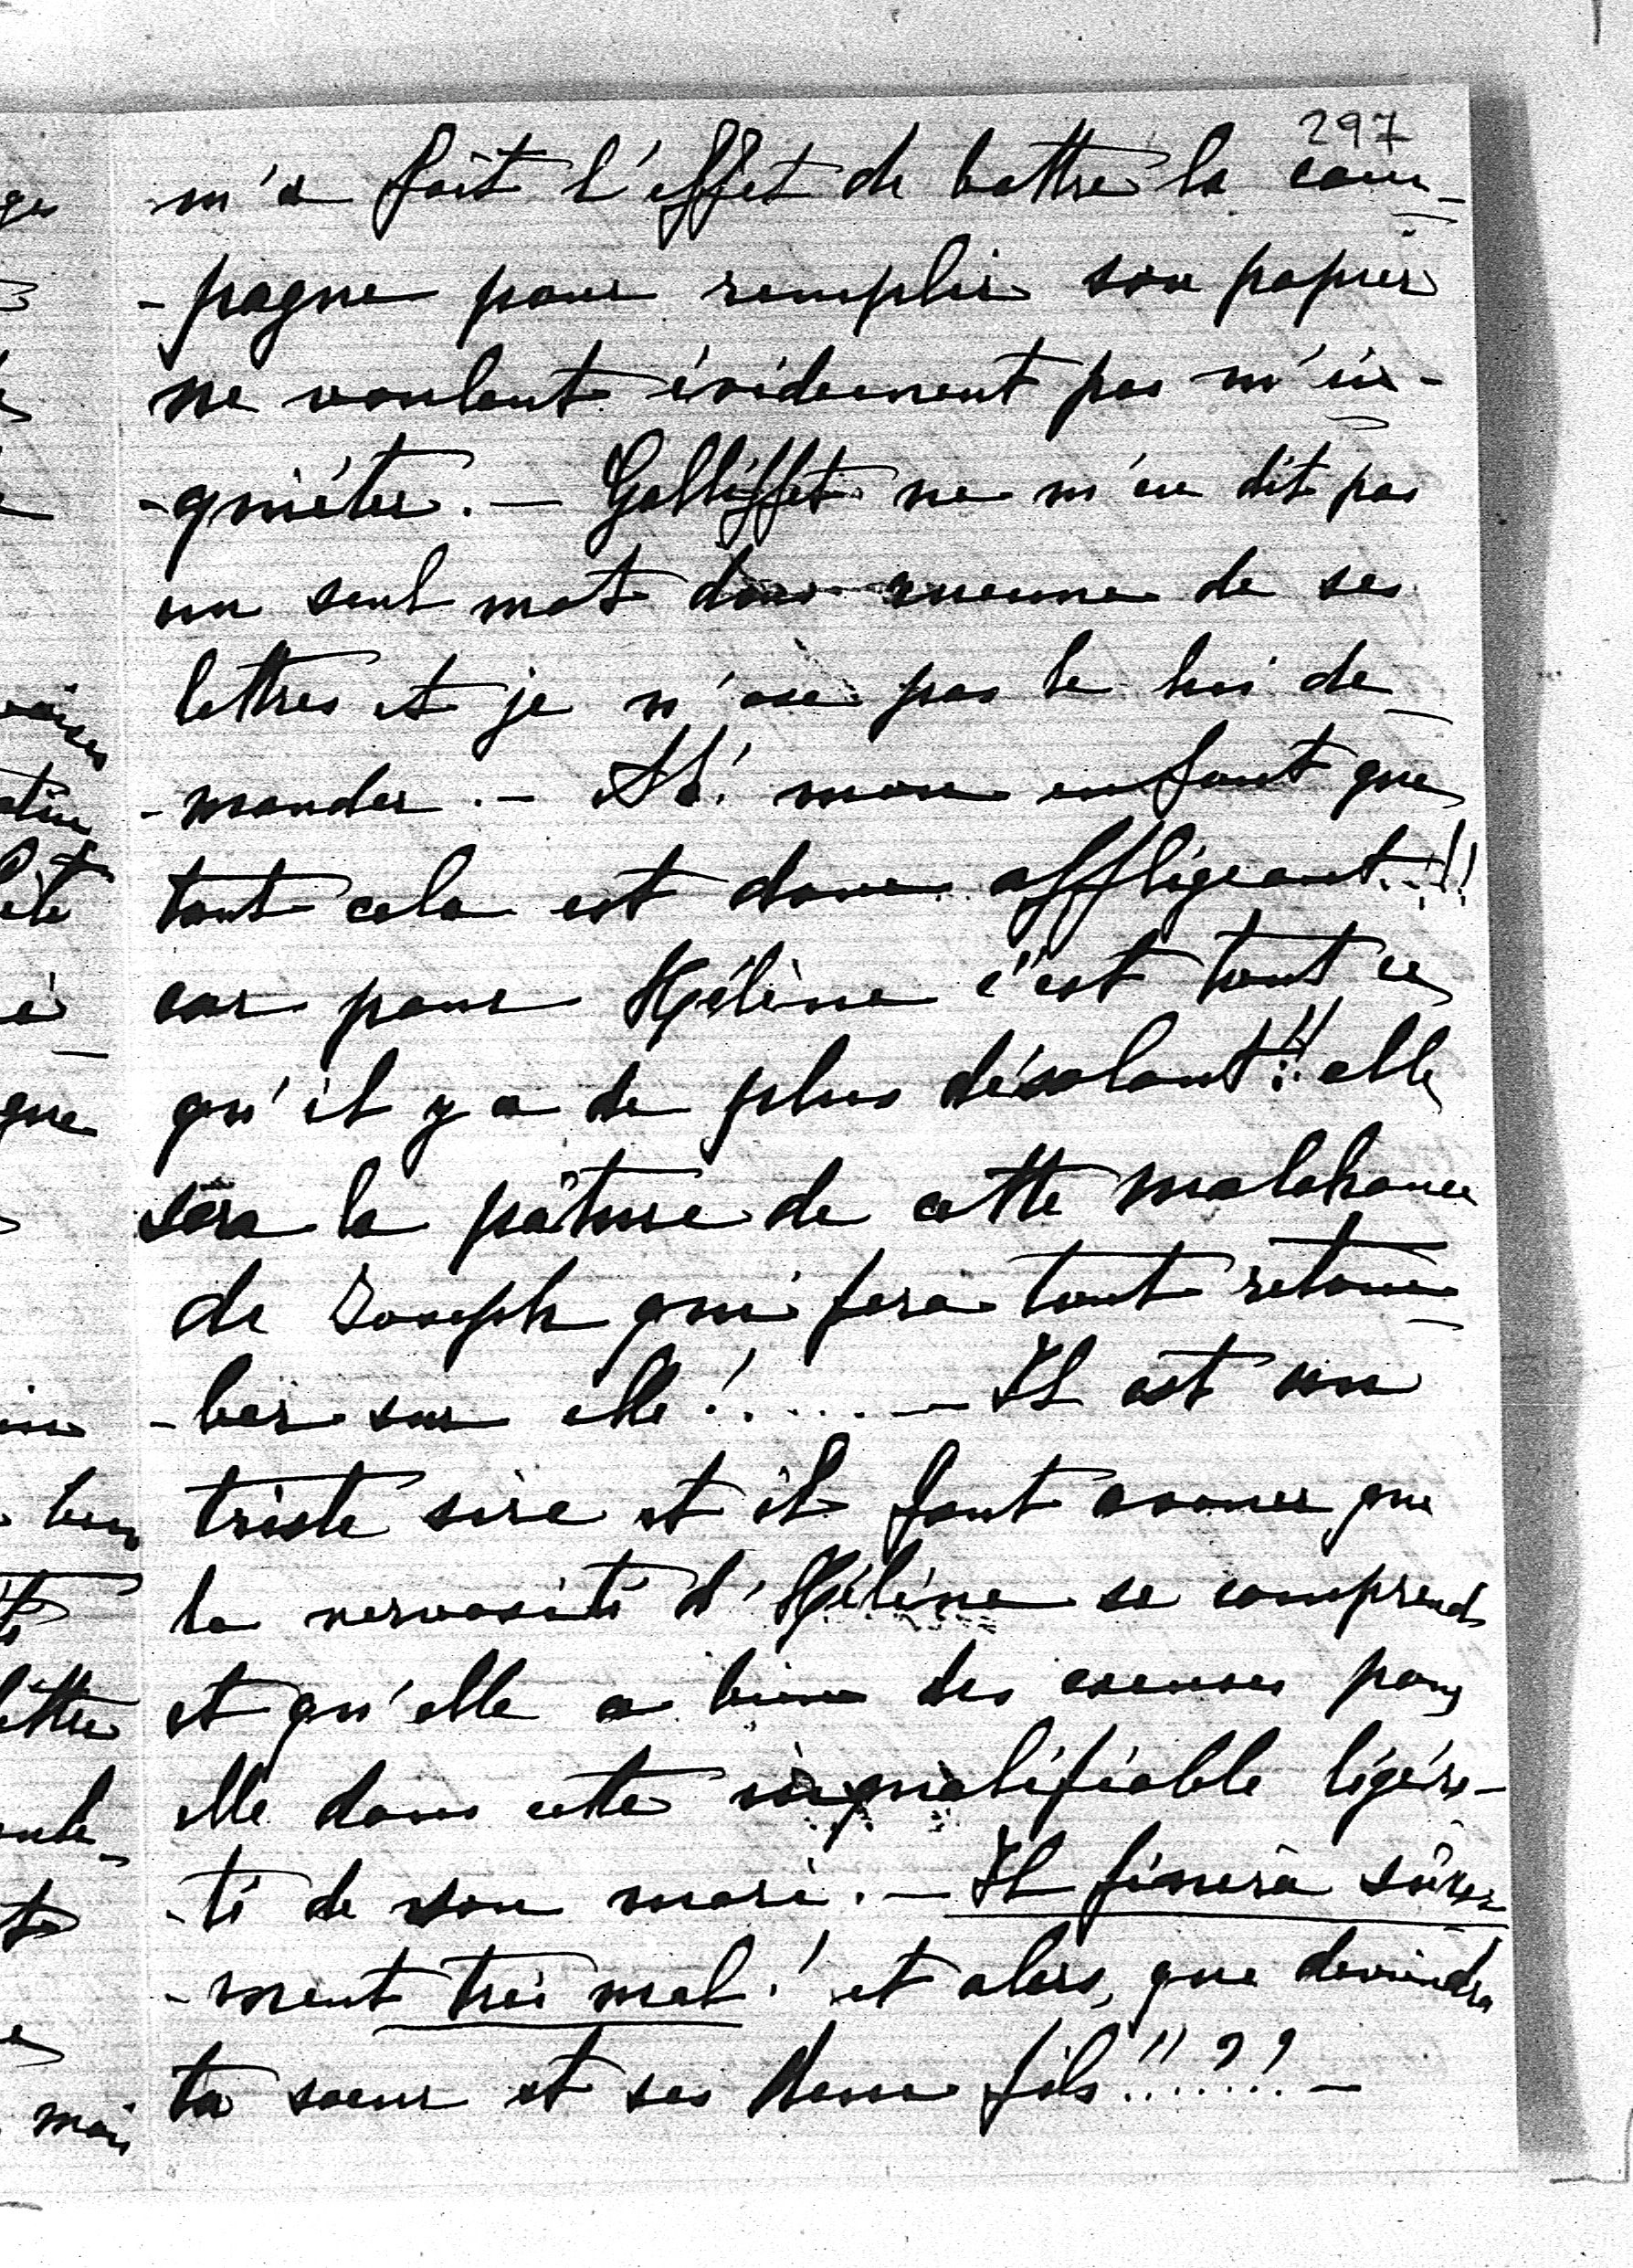 297
m'a fait l'effet de battre la cam-
-pagne pour remplir son papier
ne voulant évidemment pas m'in-
-quiéter. — Galliffet ne m'en dit pas
un seul mot dans aucune de ses
lettres et je n'ose pas le lui de-
-mander. — Ah! mon enfant que
tout cela est donc affligeant..!!
car pour Hélène c'est tout ce
qu'il y a de plus désolant!! elle
sera la pâture de cette malchance
de Joseph qui fera tout retom-
-ber sur elle!..... — Il est un
triste sire et il faut avouer que
la nervosité d'Hélène se comprend
et qu'elle a bien des excuses pour
elle dans cette inqualifiable légère-
-té de son mari. — Il finira sûre-
-ment très mal! et alors, que deviendra
ta soeur et ses deux fils!!..??. —